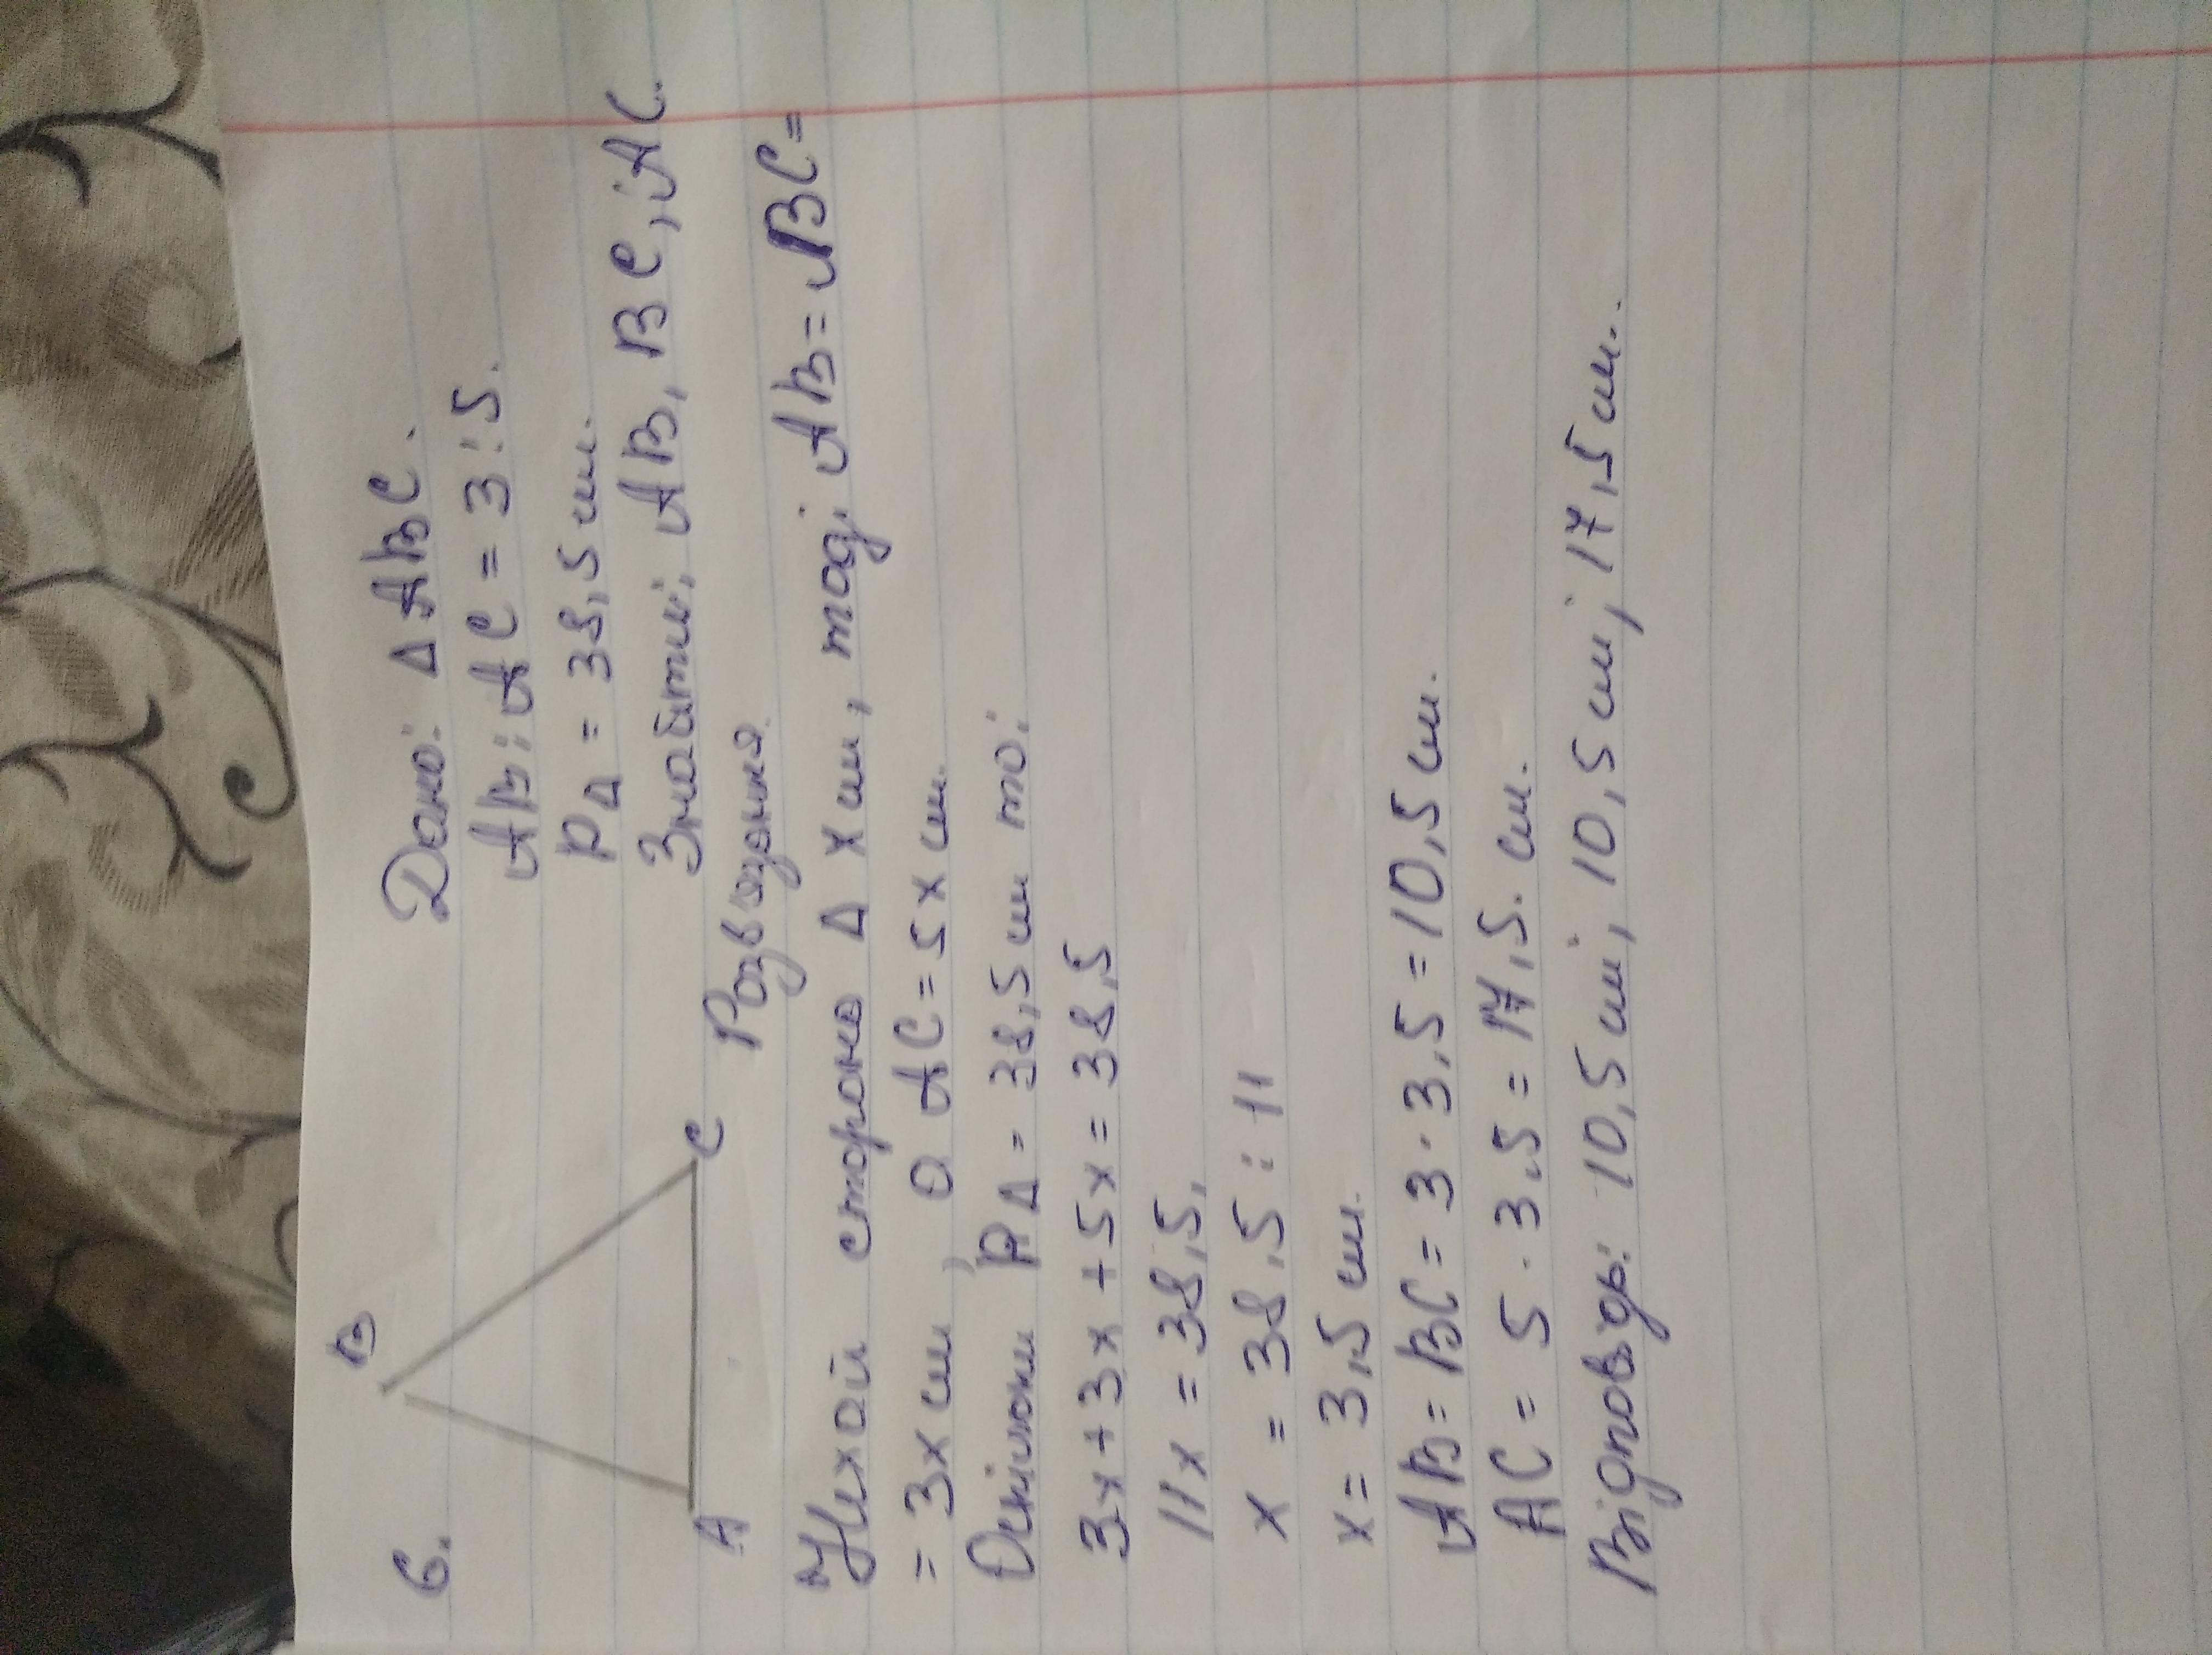 6.
B
A
C
Дано: Δ ABC.
AB : AC = 3 : 5.
PΔ = 38,5 см.
Знайти: AB, BC, AC.
Розвязання.
Нехай сторона Δ x см, тоді AB = BC =
= 3x см, а AC = 5x см.
Оскільки PΔ = 38,5 см то:
3x + 3x + 5x = 38,5
11x = 38,5.
x = 38,5 : 11
x = 3,5 см.
AB = BC = 3 · 3,5 = 10,5 см.
AC = 5 · 3,5 = 17,5. см.
Відповідь: 10,5 см; 10,5 см; 17,5 см.